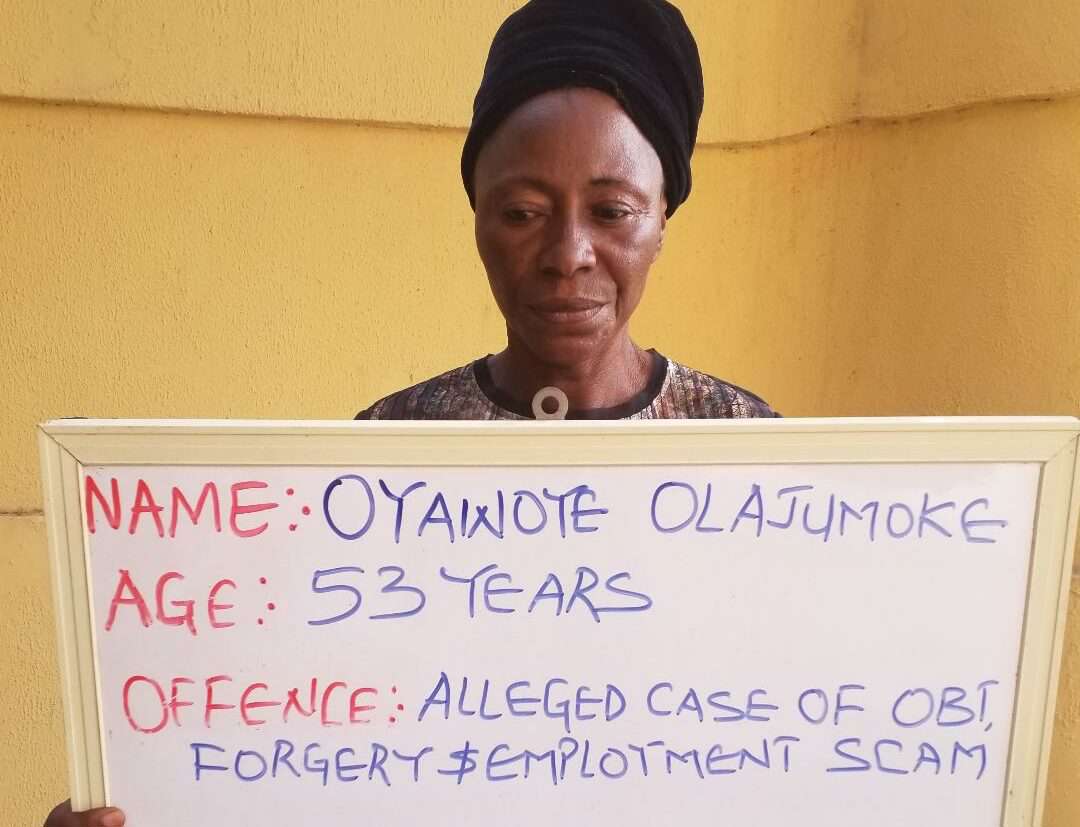 NAME:- OYAWOYE OLAJUMOKE
AGE:- 53 YEARS
OFFENCE:- ALLEGED CASE OF OBT,
FORGERY $ EMPLOYMENT SCAM